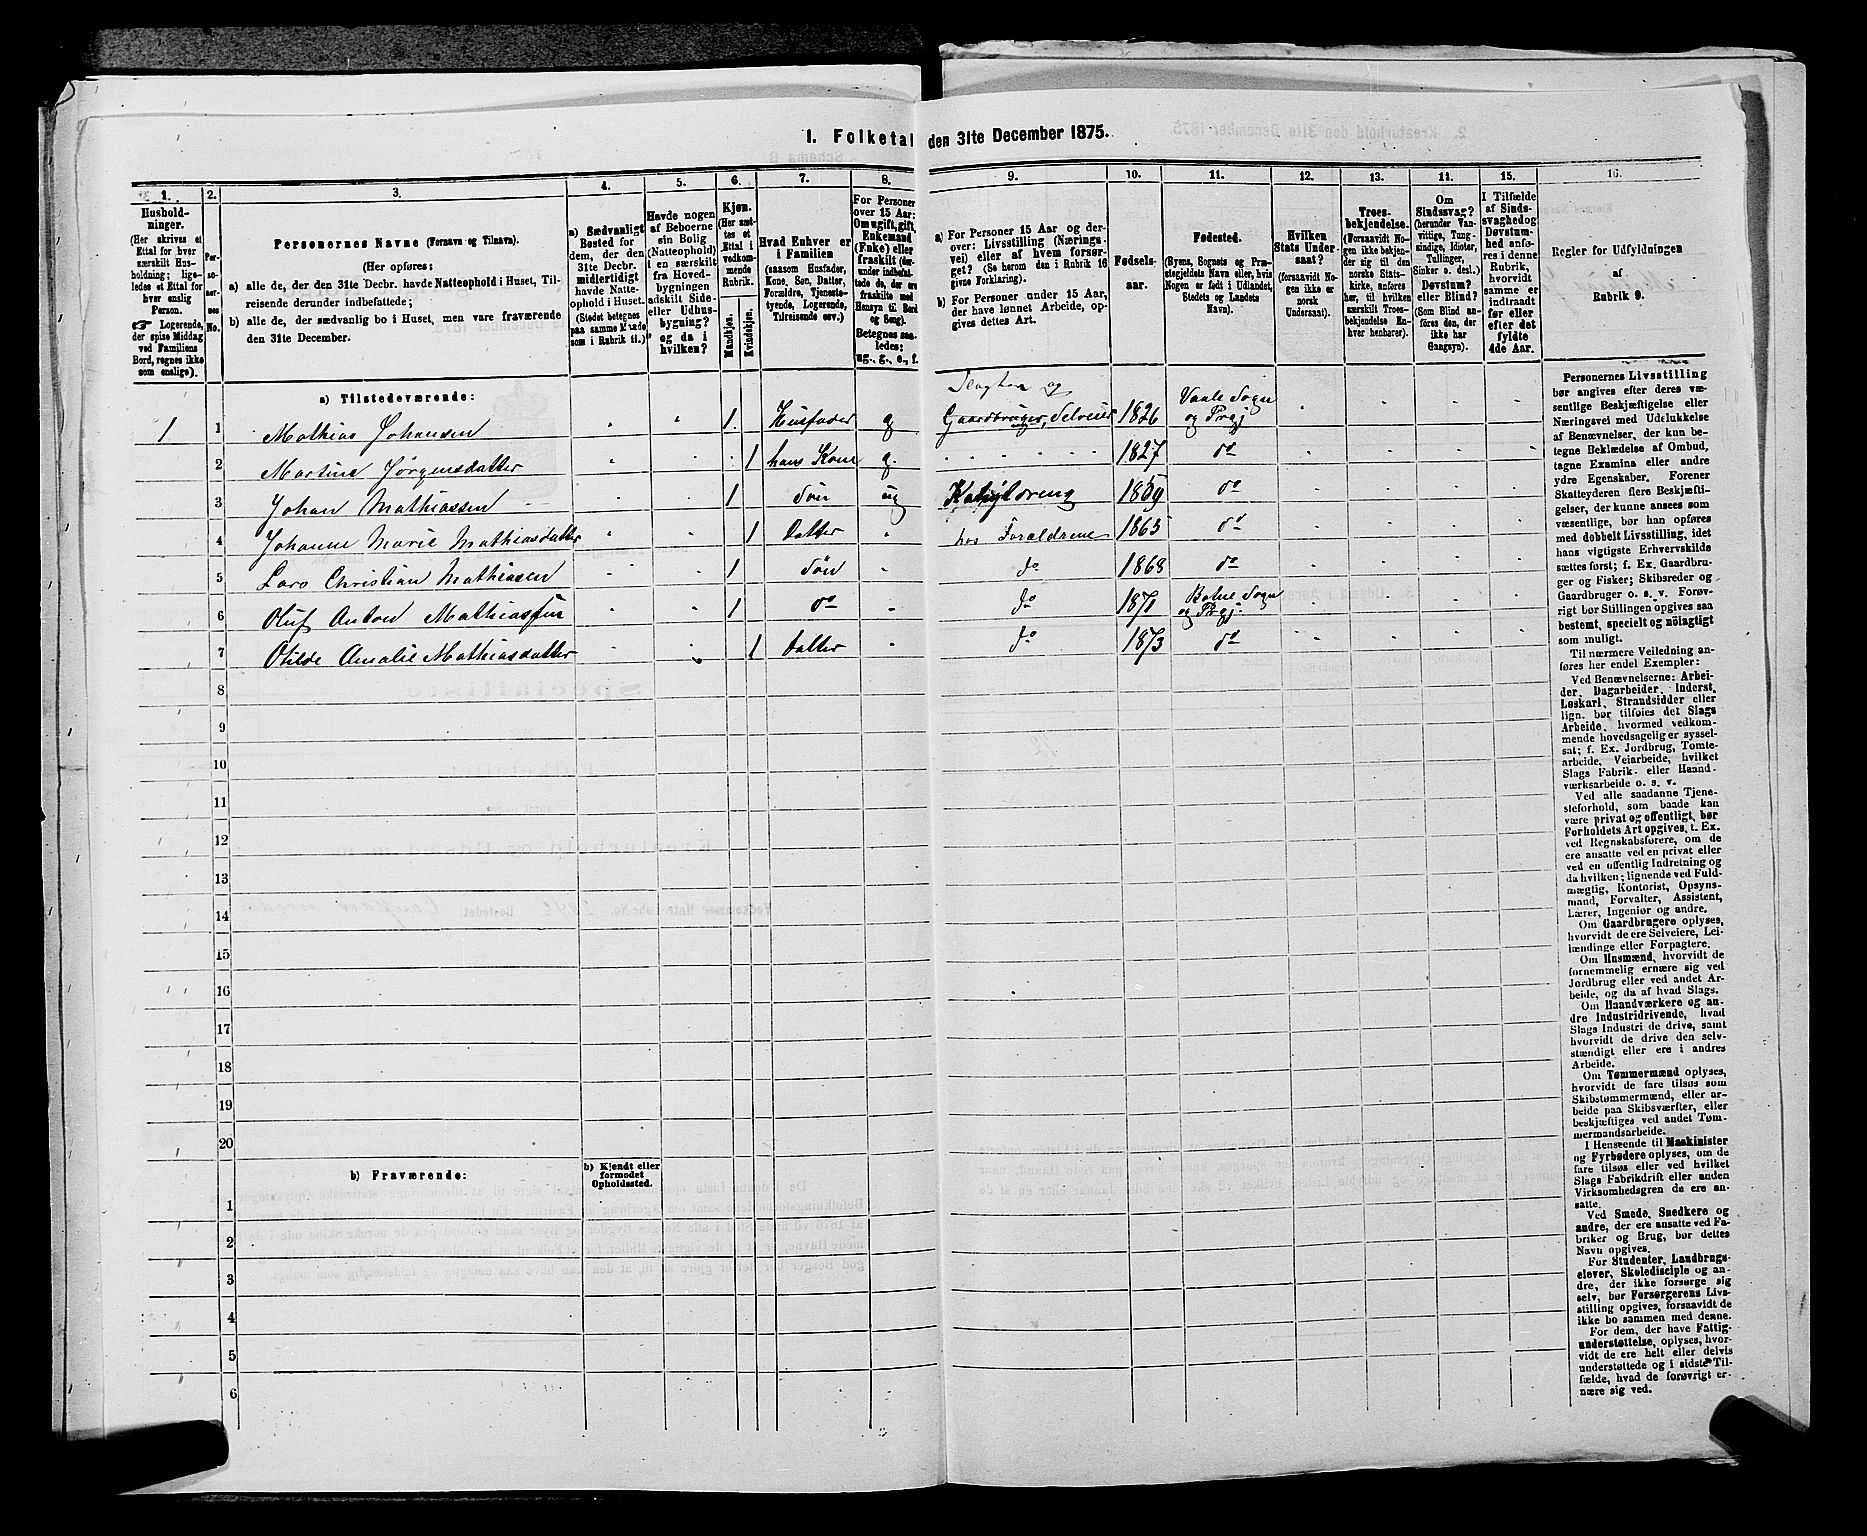 I. Folketal den 31te December 1875.
1. 2. 3. 4. 5. 6. 7. 8. 9. 10. 11. 12. 13. 14. 15. 16.
Hushold-
ninger.
(Her skrives et
Ettal for hver
særskilt Hus-
holdning; lige-
ledes et Ettal for
hver enslig
Person.
☞ Logerende,
der spise Middag
ved Familiens
Bord, regnes ikke
som enslige).
Per-
so-
ner-
nes
No.
Personernes Navne (Fornavn og Tilnavn).
(Her opføres:
a) alle de, der den 31te Decbr. havde Natteophold i Huset, Til-
reisende derunder indbefattede;
b) alle de, der sædvanlig bo i Huset, men vare fraværende
den 31te December.
a) Sædvanligt
Bosted for
dem, der den
31te Decbr.
midlertidigt
havde Natte-
ophold i Huset.
(Stedet betegnes
paa samme Maade
som i Rubrik 11.)
Havde nogen
af Beboerne
sin Bolig
(Natteophold)
i en særskilt
fra Hoved-
bygningen
adskilt Side-
eller Udhus-
bygning?
og da i
hvilken?
Kjøn.
(Her sæt-
tes et
Ettal i
vedkom-
mende
Rubrik.
Mandkjøn.
Kvindekjøn.
Hvad Enhver er
i Familien
(saasom Husfader,
Kone, Søn, Datter,
Forældre, Tjeneste-
tyende, Logerende,
Tilreisende osv.)
For Personer
over 15 Aar:
Om ugift, gift,
Enkemand
(Enke) eller
fraskilt (der-
under indbefat-
tede de, der ere
fraskilte med
Hensyn til Bord
og Seng).
Betegnes saa-
ledes:
ug., g., e., f.
a) For Personer 15 Aar og der-
over: Livsstilling (Nærings-
vei) eller af hvem forsør-
get? (Se herom den i Rubrik 16
givne Forklaring).
b) For Personer under 15 Aar,
der have lønnet Arbeide, op-
gives dettes Art.
Fødsels-
aar.
Fødested.
(Byens, Sognets og Præ-
stegjeldets Navn eller, hvis
Nogen er født i Udlandet,
Stedets og Landets
Navn).
Hvilken
Stats Under-
saat?
(forsaavidt No-
gen ikke er
norsk
Undersaat).
Troes-
bekjendelse.
(Forsaavidt No-
gen ikke bekjen-
der sig til den
norske Stats-
kirke, anføres
her, til hvilken
særskilt Troes-
bekjendelse En-
hver henhører).
Om
Sindssvag?
(herunder Van-
vittige, Tung-
sindige, Idioter,
Tullinger,
Sinker o. desl.)
Døvstum?
eller Blind?
(Som Blind an-
føres den, der
ikke har
Gangsyn).
I Tilfælde
af Sinds-
svaghed og
Døvstum-
hed anfø-
res i denne
Rubrik,
hvorvidt
samme er
indtraadt
før eller
efter det
fyldte
4de Aar.
Regler for Udfyldningen
af
Rubrik 9.
a) Tilstedeværende:
1 1 Mathias Johansen 1 Husfader g Slagter og Gaardbruger, Selveier 1826 Vaale Sogn og Prgj
2 Martine Jørgensdatter 1 hans Kone g. 1827 do
3 Johan Mathiassen 1 Søn ug do
4 Johanne Marie Mathiasdatter 1 Datter hos Foraldrene 1865 do
5 Lars Christian Mathiasen 1 Søn do 1868 do
6 Oluf Anton Mathiassen 1 do do 1871 Botne Sogn og Prgj.
7 Otilde Amalie Mathiasdatter 1 Datter do 1873 do
8
9
10
11
12
13
14
15
16
17
18
19
20
b) Fraværende:
b) Kjendt eller
formodet
Opholdssted.
1
2
3
4
5
6
Personernes Livsstilling
bør angives efter deres væ-
sentlige Beskjæftigelse eller
Næringsvei med Udelukkelse
af Benævnelser, der kun be-
tegne Beklædelse af Ombud,
tagne Examina eller andre
ydre Egenskaber. Forener
Skatteyderen flere Beskjæfti-
gelser, der kunne ansees som
væsentlige, bør han opføres
med dobbelt Livsstilling, idet
hans vigtigste Erhvervskilde
sættes først; f. Ex. Gaardbru-
ger og Fisker; Skibsreder og
Gaardbruger o. s. v. Forøv-
rigt bør Stillingen opgives saa
bestemt, specielt og nöiagtigt
som muligt.
Til nærmere Veiledning an-
føres her endel Exempler:
Ved Benævnelserne: Arbei-
der, Dagarbeider, Inderst,
Løskarl, Strandsidder eller
lign. bør tilføies det Slags
Arbeide, hvormed vedkom-
mende hovedsagelig er syssel-
sat; f. Ex. Jordbrug, Tomte-
arbeide, Veiarbeide, hvilket
Slags Fabrik- eller Haand-
værksarbeide o. s. v.
Ved alle saadanne Tjene-
steforhold, som baade kan
være privat og offentligt, bør
Forholdets Art opgives, t. Ex.
ved Regnskabsførere, om de
ere ansatte ved en privat eller
ved en offentlig Indretning og
da hvilken; lignende ved Fuld-
mægtig, Kontorist, Opsyns-
mand, Forvalter, Assistent,
Lærer, Ingeniør og andre.
Om Gaardbrugere oplyses,
hvorvidt de ere Selveiere, Lei-
lændinge eller Forpagtere.
Om Husmænd, hvorvidt de
fornemmelig ernære sig ved
Jordbrug eller ved andet Ar-
beide, og da af hvad Slags.
Om Haandværkere og an-
dre Industridrivende, hvad
Slags Industri de drive, samt
hvorvidt de drive den selv-
stændigt eller ere i andres
Arbeide.
Om Tømmermænd oplyses,
hvorvidt de fare tilsøs som
Skibstømmermænd, eller ar-
beide paa Skibsværfter, eller
beskjæftiges ved andet Tøm-
mermandsarbeide.
I Henseende til Maskinister
og Fyrbødere oplyses, om de
fare tilsøs eller ved hvilket
Slags Fabrikdrift eller anden
Virksomhedsgren de ere an-
satte.
Ved Smede, Snedkere og
andre, der ere ansatte ved Fa-
briker og Brug, bør dettes
Navn opgives.
For Studenter, Landbrugs-
elever, Skoledisciple og an-
dre, der ikke forsørge sig
selv, bør Forsørgerens Livs-
stilling opgives, forsaavidt de
ikke bo sammen med denne.
For dem, der have Fattig-
understøttelse, oplyses, hvor-
vidt de ere helt eller delvis
understøttede og i sidste Til-
fælde, hvad de forøvrigt er-
nære sig ved.